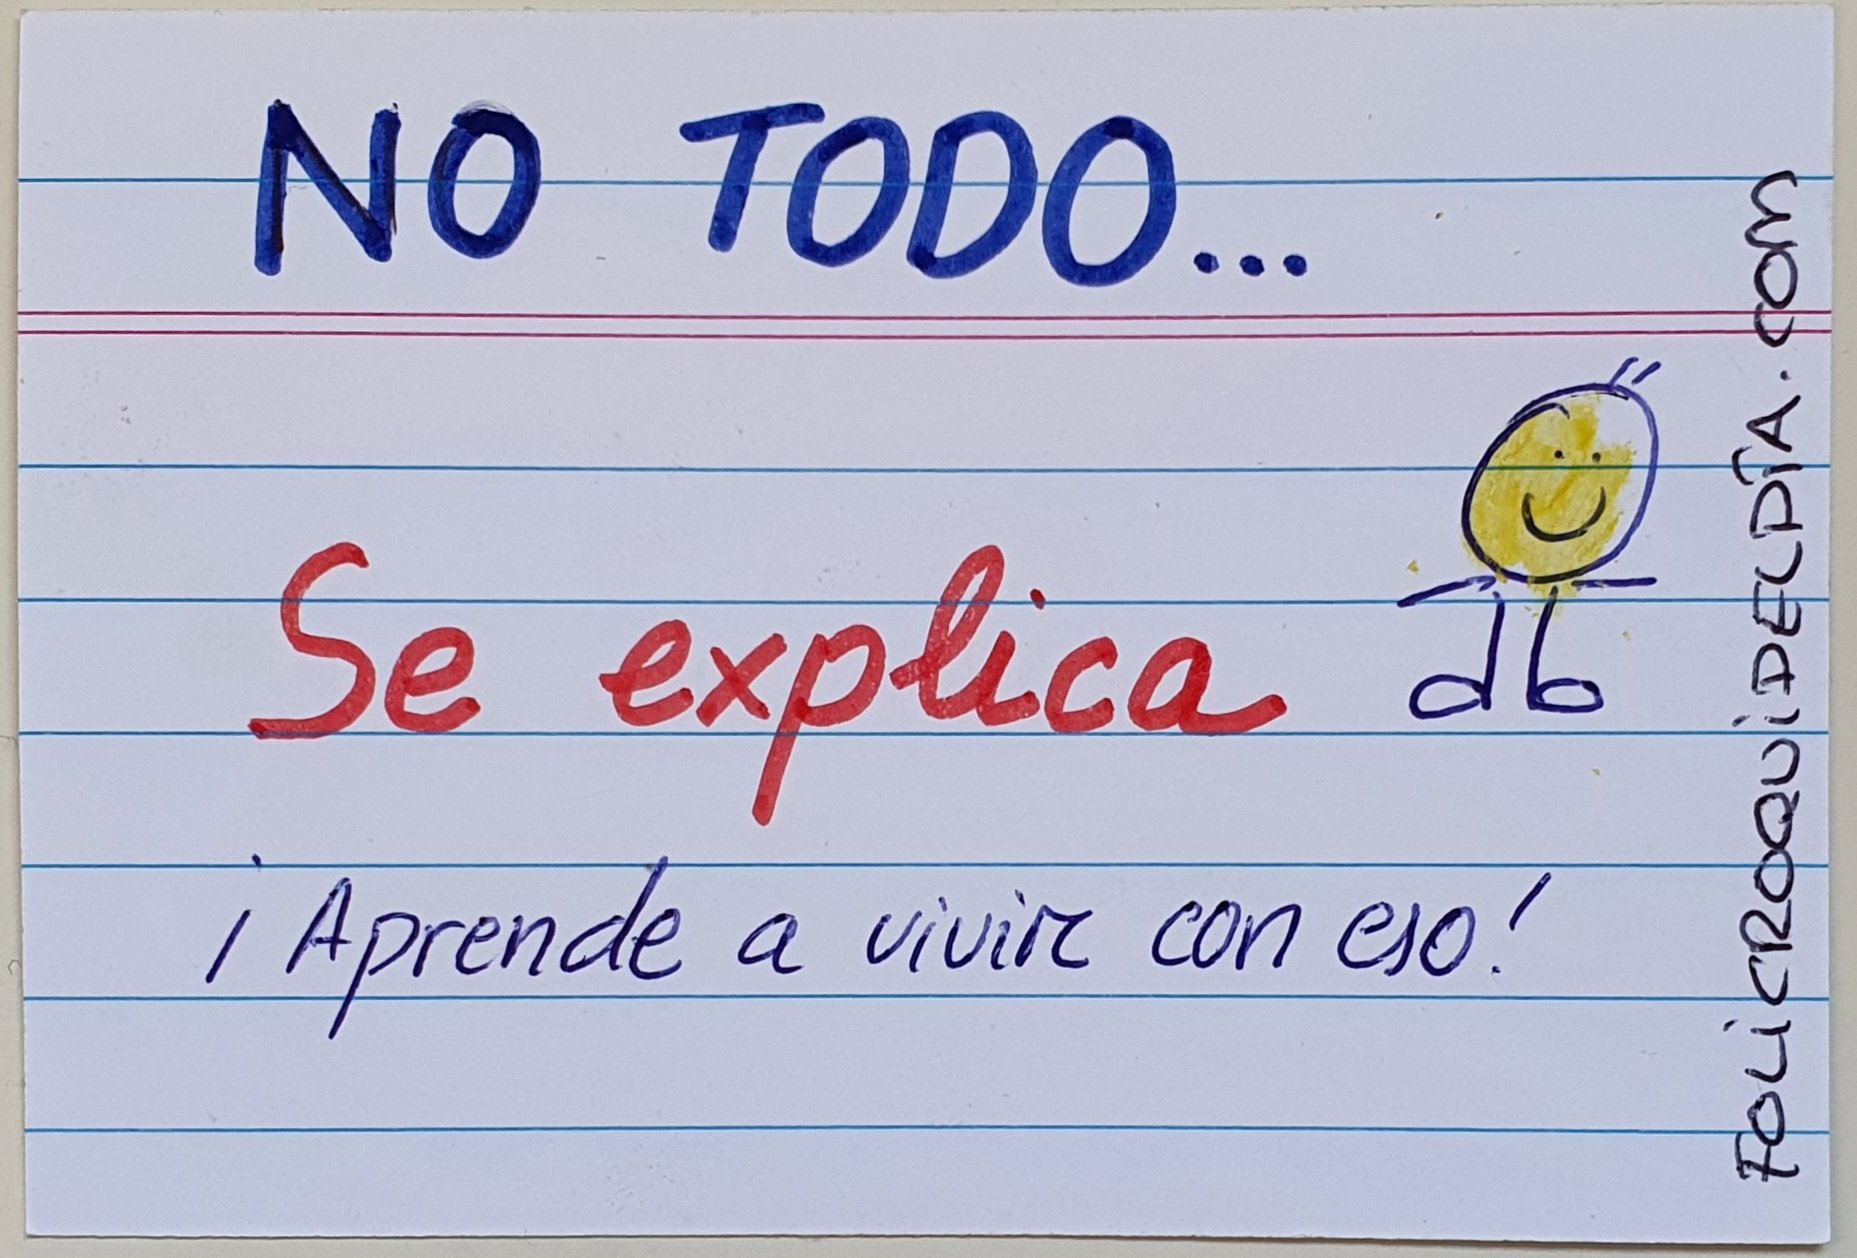 NO TODO...
Se explica
¡Aprende a vivir con eso!
FOLiCROQUiDELDÍA.COM